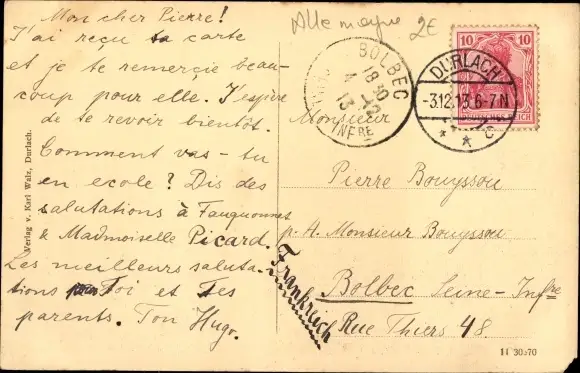 Mon cher Pierre!
J'ai reçu ta carte
et je te remercie beau-
coup pour elle. J'espère
de te revoir bientôt.
Comment vas-tu
en ecole? Dis des
salutations à Fauquonnes
& Madmoiselle Picard.
Les meilleurs saluta-
tions pour Toi et Tes
parents. Ton Hugo.
Verlag v. Karl Walz, Durlach.
Allemagne 2E
BOLBEC
INFRE
10 10
DEUTSCHES REICH
DURLACH
-3.12.13.6-7N
* c
Monsieur
Pierre Bouyssou
p. A. Monsieur Bouyssou
Bolbec Seine-Infre
Rue Thiers 48.
Frankreich
11 30570